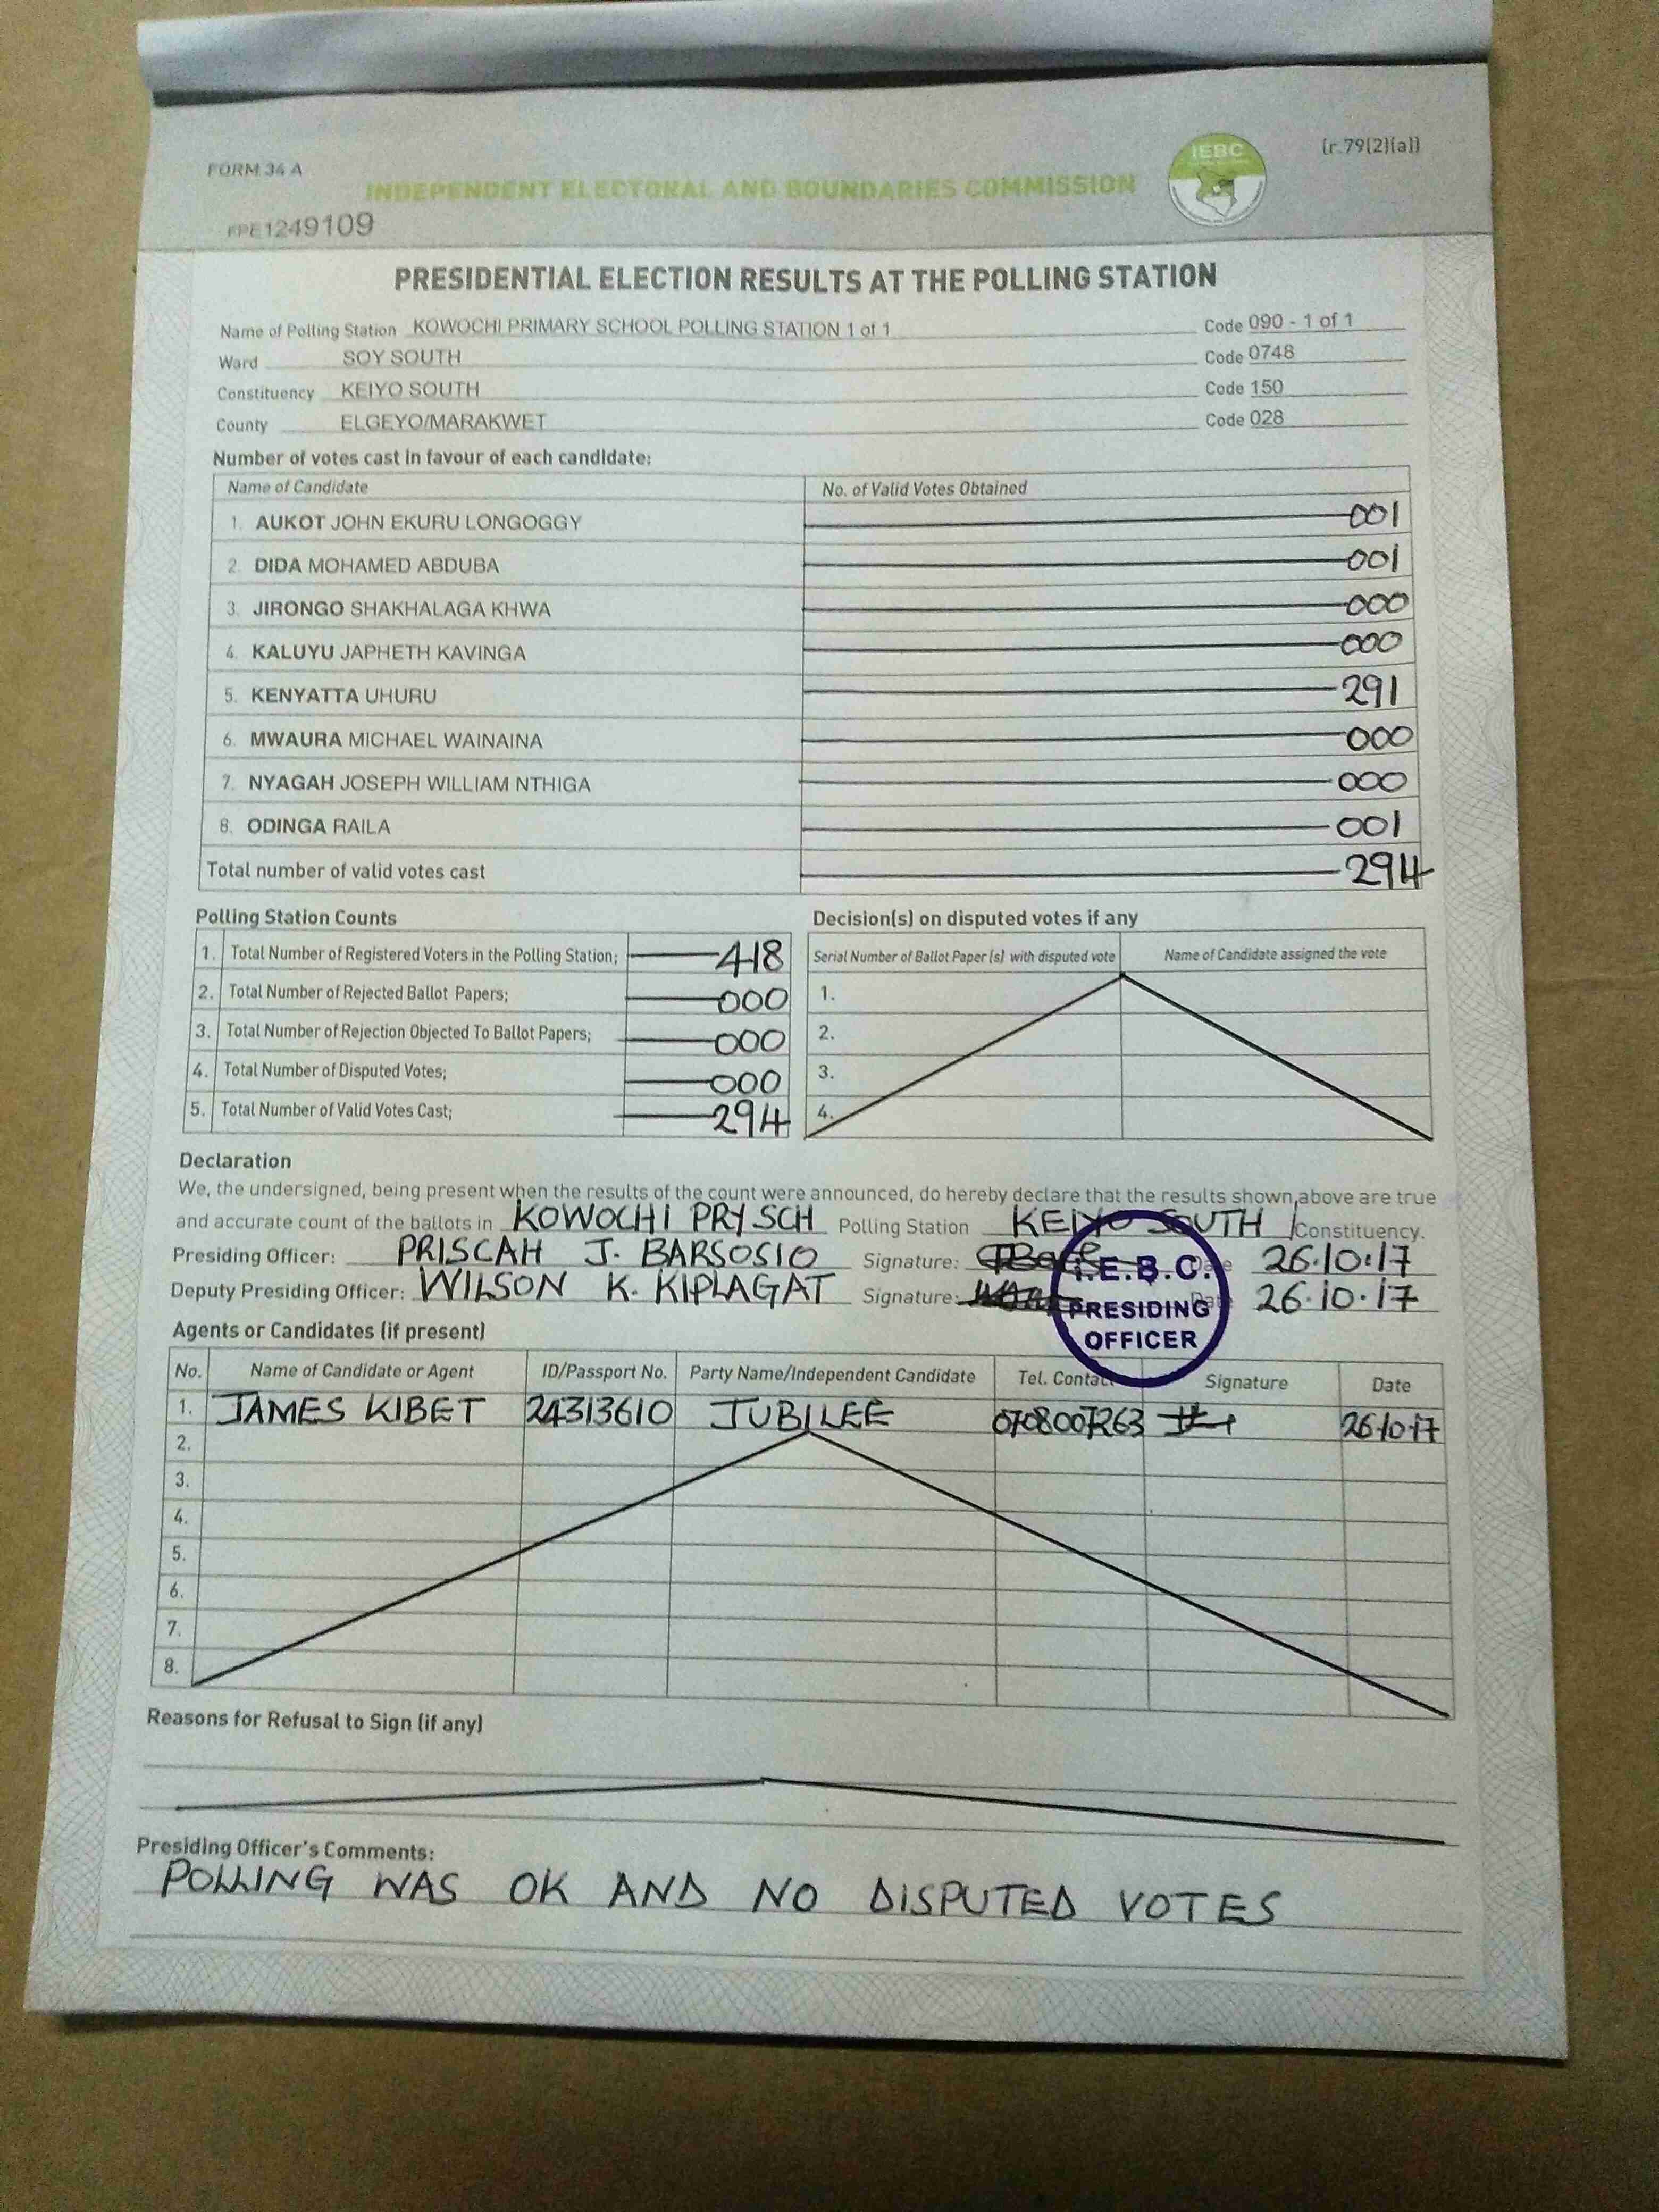 FORM 34 A
(r.79(2)(a))
IEBC
INDEPENDENT ELECTORAL AND BOUNDARIES COMMISSION
PRE1249109
PRESIDENTIAL ELECTION RESULTS AT THE POLLING STATION
Name of Polling Station KOWOCHI PRIMARY SCHOOL POLLING STATION 1 of 1 Code 090 - 1 of 1
Ward SOY SOUTH Code 0748
Constituency KEIYO SOUTH Code 150
County ELGEYO/MARAKWET Code 028
Number of votes cast in favour of each candidate:
Name of Candidate No. of Valid Votes Obtained
1. AUKOT JOHN EKURU LONGOGGY 001
2. DIDA MOHAMED ABDUBA 001
3. JIRONGO SHAKHALAGA KHWA 000
4. KALUYU JAPHETH KAVINGA 000
5. KENYATTA UHURU 291
6. MWAURA MICHAEL WAINAINA 000
7. NYAGAH JOSEPH WILLIAM NTHIGA 000
8. ODINGA RAILA 001
Total number of valid votes cast 294
Polling Station Counts
1. Total Number of Registered Voters in the Polling Station; 418
2. Total Number of Rejected Ballot Papers; 000
3. Total Number of Rejection Objected To Ballot Papers; 000
4. Total Number of Disputed Votes; 000
5. Total Number of Valid Votes Cast; 294
Decision(s) on disputed votes if any
Serial Number of Ballot Paper (s) with disputed vote Name of Candidate assigned the vote
1.
2.
3.
4.
Declaration
We, the undersigned, being present when the results of the count were announced, do hereby declare that the results shown above are true
and accurate count of the ballots in KOWOCHI PRY SCH Polling Station KEIYO SOUTH Constituency.
Presiding Officer: PRISCAH J. BARSOSIO Signature: Date 26.10.17
Deputy Presiding Officer: WILSON K. KIPLAGAT Signature: Date 26.10.17
I.E.B.C.
PRESIDING
OFFICER
Agents or Candidates (if present)
No. Name of Candidate or Agent ID/Passport No. Party Name/Independent Candidate Tel. Contact Signature Date
1. JAMES KIBET 24313610 JUBILEE 0708007263 26.10.17
2.
3.
4.
5.
6.
7.
8.
Reasons for Refusal to Sign (if any)
Presiding Officer's Comments:
POLLING WAS OK AND NO DISPUTED VOTES